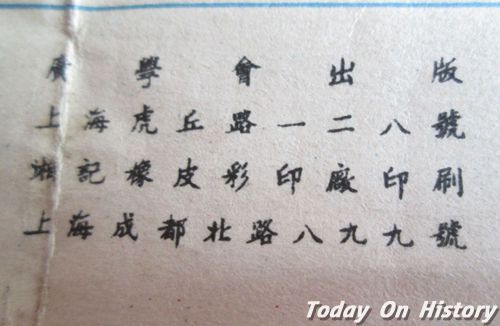 廣學會出版
上海虎丘路一二八號
湘記橡皮彩印廠印刷
上海成都北路八九九號
Today On History